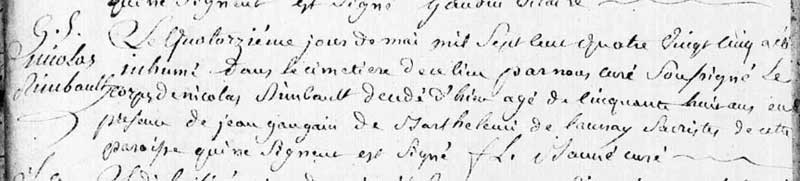 qui ne signent est signé Gandon vicaire
G. S.
nicolas
Rimbault
Le quatorzième jour de mai mil sept cent quatre vingt cinq a été
inhumé dans le cimetiere de ce lieu par nous curé soussigné Le
corps de nicolas Rimbault decedé d'hier agé de cinquante huit ans en
présence de jean gaugain de Barthelemi de launay sacristes de cette
paroisse qui ne signent est signé f L. curé